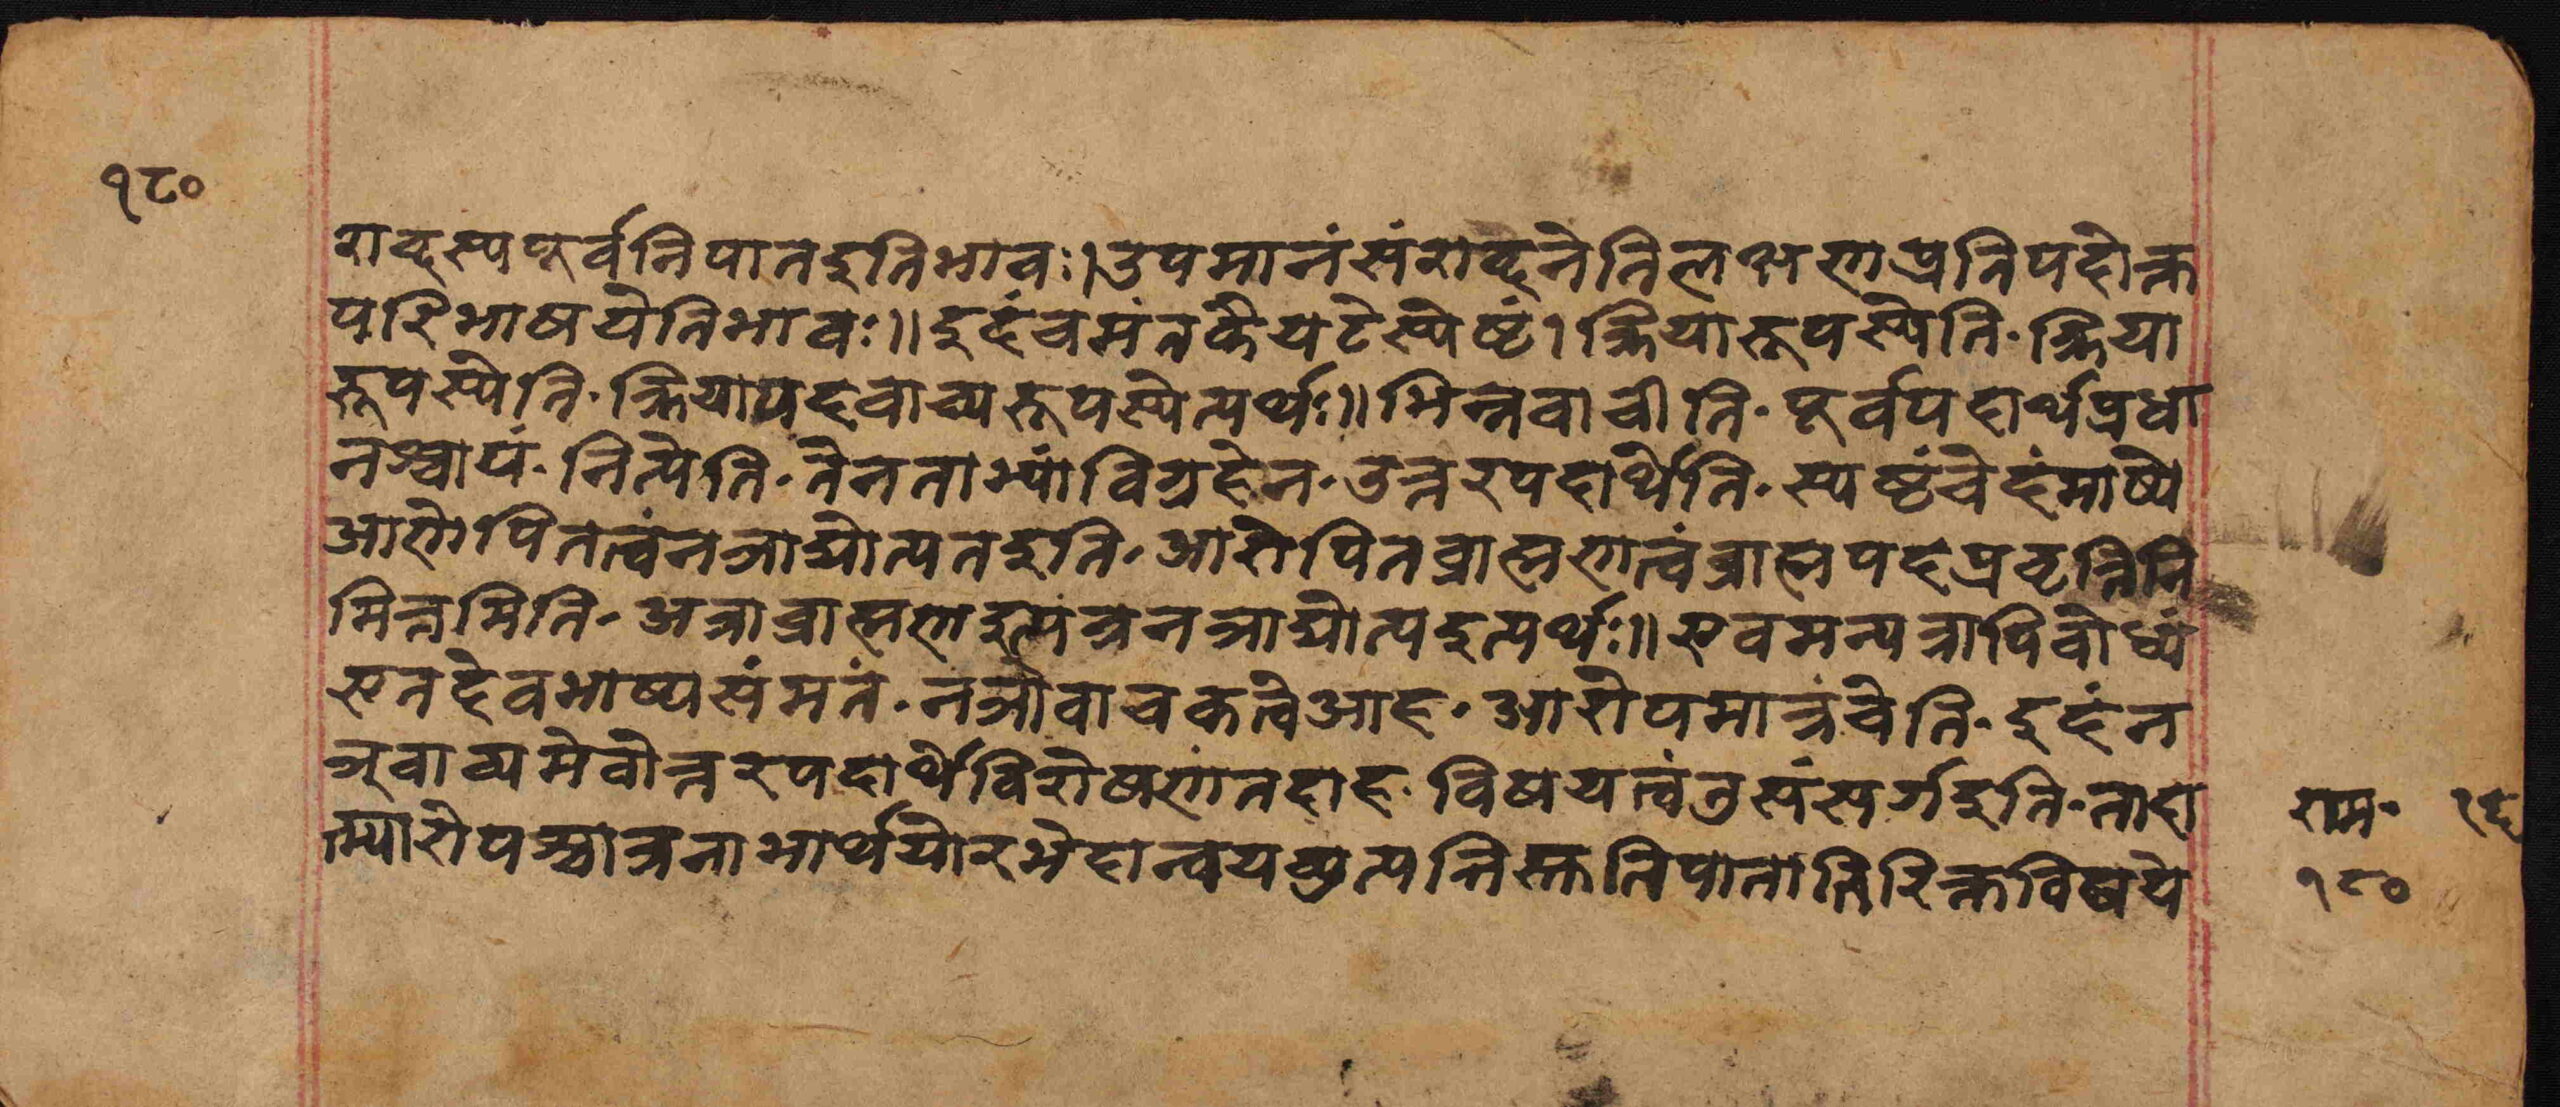 १८०
शब्दस्य पूर्वनिपात इति भावः। उपमानं संशब्दनेति लक्षणप्रतिपदोक्त
परिभाषयेति भावः॥ इदं च मंत कैयटे स्पष्टं। क्रियारूपस्येति॰ क्रिया
रूपस्येति॰ क्रियापदवाच्यरूपस्येत्यर्थः॥ भिन्नवाचीति॰ पूर्वपदार्थप्रधा
नश्चायं॰ नित्येति॰ तेन ताभ्यां विग्रहेन॰ उत्तरपदार्थेति॰ स्पष्टं चेदं भाष्ये
आरोपितत्वं नञाद्योत्यत इति॰ आरोपितब्राह्मणत्वं ब्राह्मपदप्रवृत्तिनि
मित्तमिति॰ अत्राब्राह्मण इत्यत्र नञाद्योत्य इत्यर्थः॥ एवमन्यत्रापि बोध्यं
एतदेव भाष्यसंमतं॰ नञो वाचकत्वे आह॰ आरोपमात्रं वेति॰ इदं न
ञ्वाच्यमेवोत्तरपदार्थे विशेषणं तदाह॰ विषयत्वं तु संसर्ग इति॰ तादा
त्म्यारोपश्चात्र नाभार्थयोरभेदान्वयव्युत्पत्तिस्तु निपातातिरिक्तविषये
राम॰
१८०